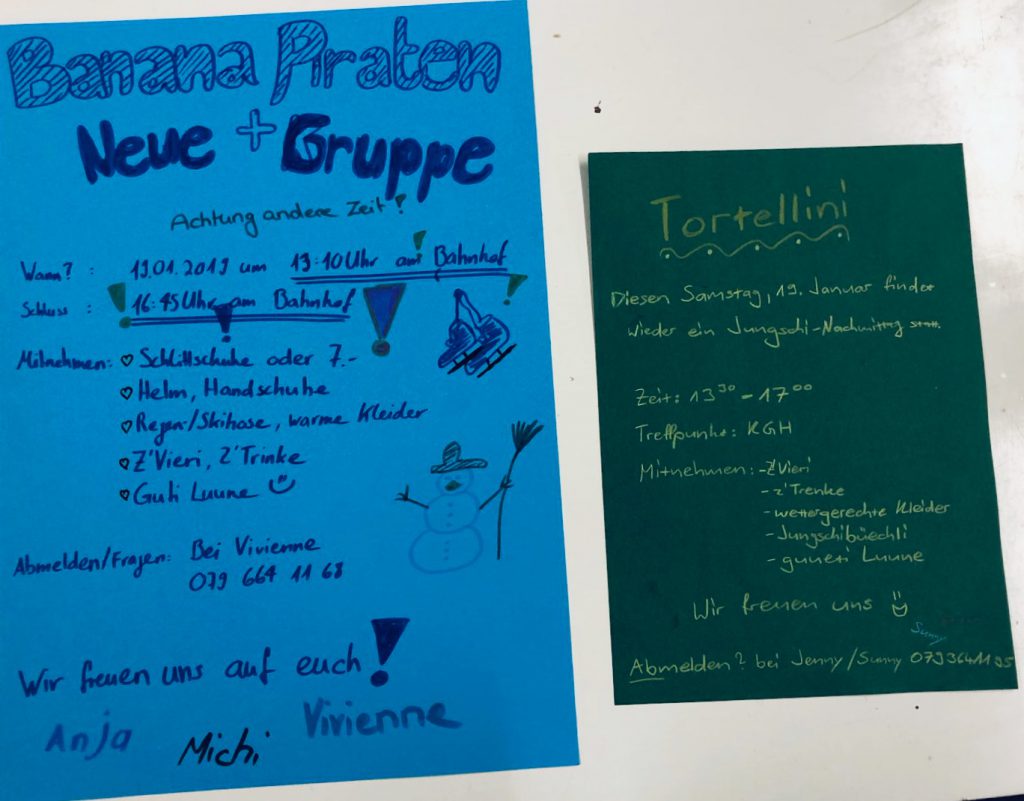 Banana Piraten
+
Neue Gruppe
Achtung andere Zeit!
Wann? : 19.01.2019 um 13:10 Uhr am Bahnhof
Schluss : 16:45 Uhr am Bahnhof
Mitnehmen: ♡ Schlittschuhe oder 7.-
♡ Helm, Handschuhe
♡ Regen-/Skihose, warme Kleider
♡ Z'Vieri, Z'Trinke
♡ Guti Luune
Abmelden/Fragen: Bei Vivienne
079 664 11 68
Wir freuen uns auf euch!
Anja Michi Vivienne
Tortellini
Diesen Samstag, 19. Januar findet
wieder ein Jungschi-Nachmittag statt.
Zeit: 13³⁰ - 17⁰⁰
Treffpunkt: KGH
Mitnehmen: - Z'Vieri
- z'Trenke
- wettergerechte Kleider
- Jungschibüechli
- gueti Luune
Wir freuen uns
Sunny
Abmelden? bei Jenny/Sunny 079 364 11 95